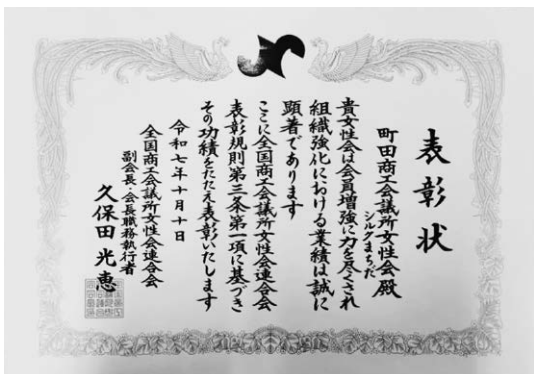 表彰状
町田商工会議所女性会殿
シルクまちだ
貴女性会は会員増強に力を尽され
組織強化における業績は誠に
顕著であります
ここに全国商工会議所女性会連合会
表彰規則第三条第一項に基づき
その功績をたたえ表彰いたします
令和七年十月十日
全国商工会議所女性会連合会
副会長・会長職務執行者
久保田光恵